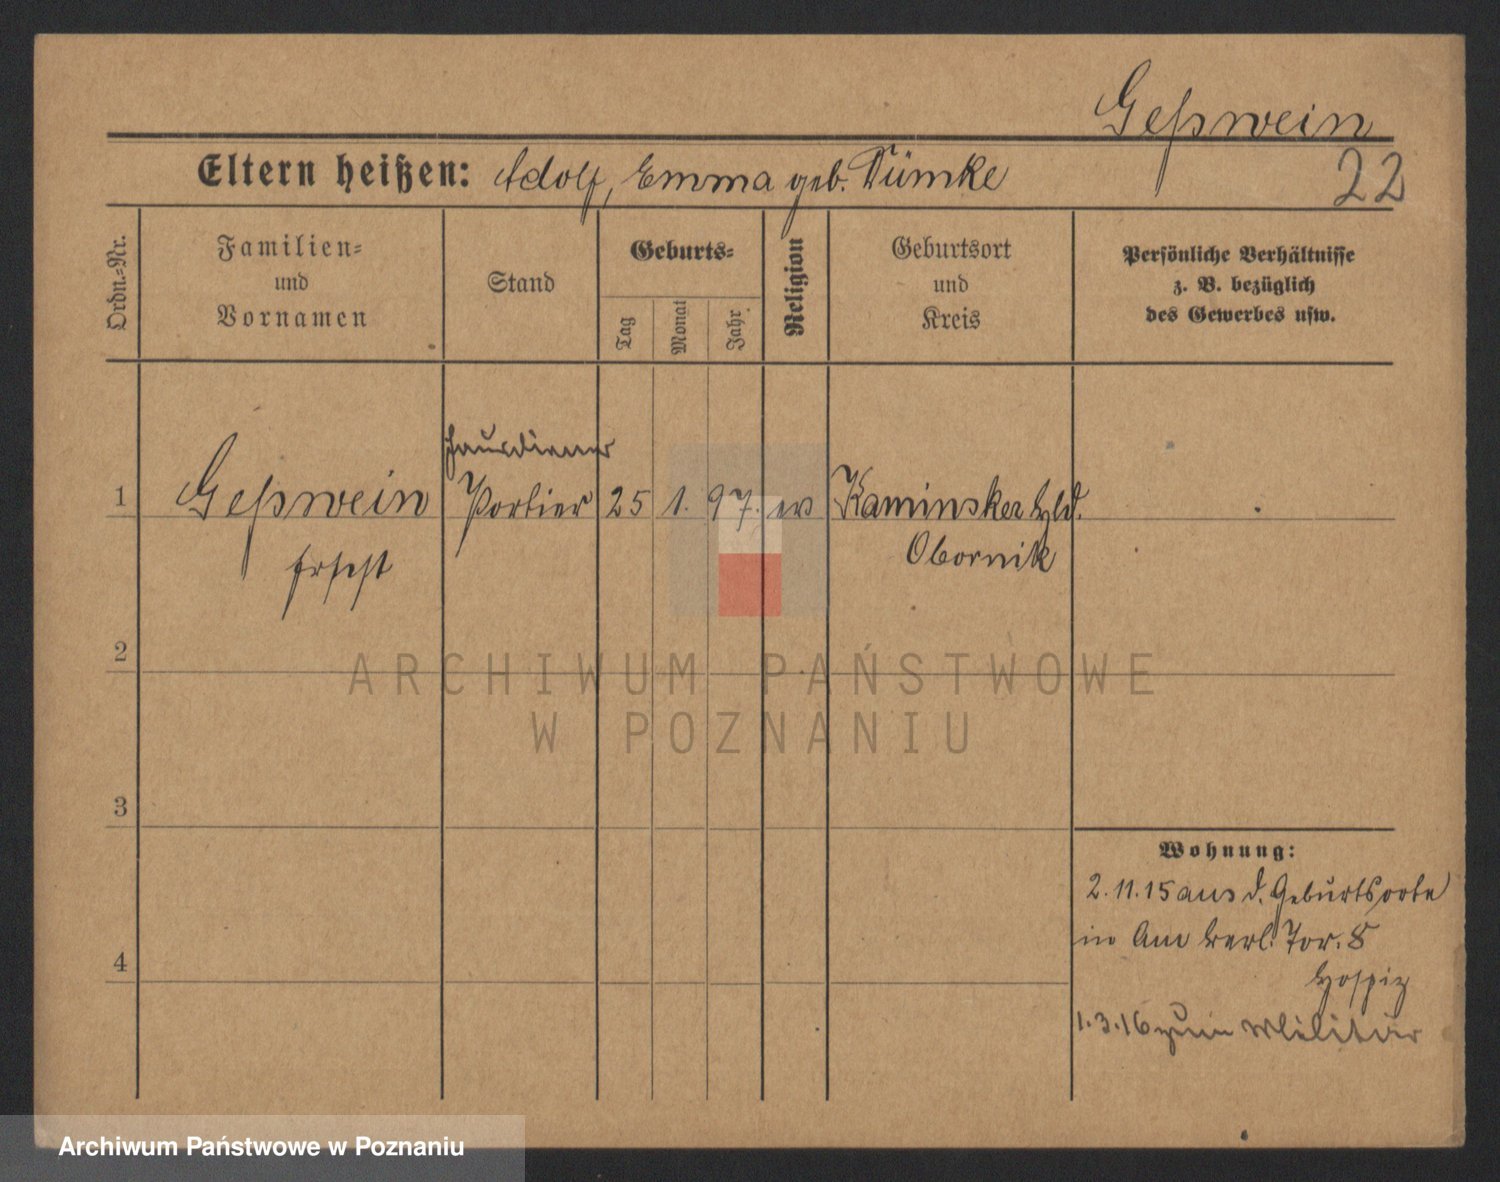 Geßwein
Eltern heißen: Adolf, Emma geb. Tümke
22
Ordn.-Nr.
Familien-
und
Vornamen
Stand
Geburts-
Tag
Monat
Jahr
Religion
Geburtsort
und
Kreis
Persönliche Verhältnisse
z. B. bezüglich
des Gewerbes usw.
Hausdiener
1 Geßwein Portier 25 1. 97. ev Kaminsker Hld.
Obornik
2
3
4
Wohnung:
2.11.15 aus d. Geburtsorte
in Am Berl. Tor. 8
Hospiz
1.3.16 zum Militär
ARCHIWUM PAŃSTWOWE
W POZNANIU
Archiwum Państwowe w Poznaniu